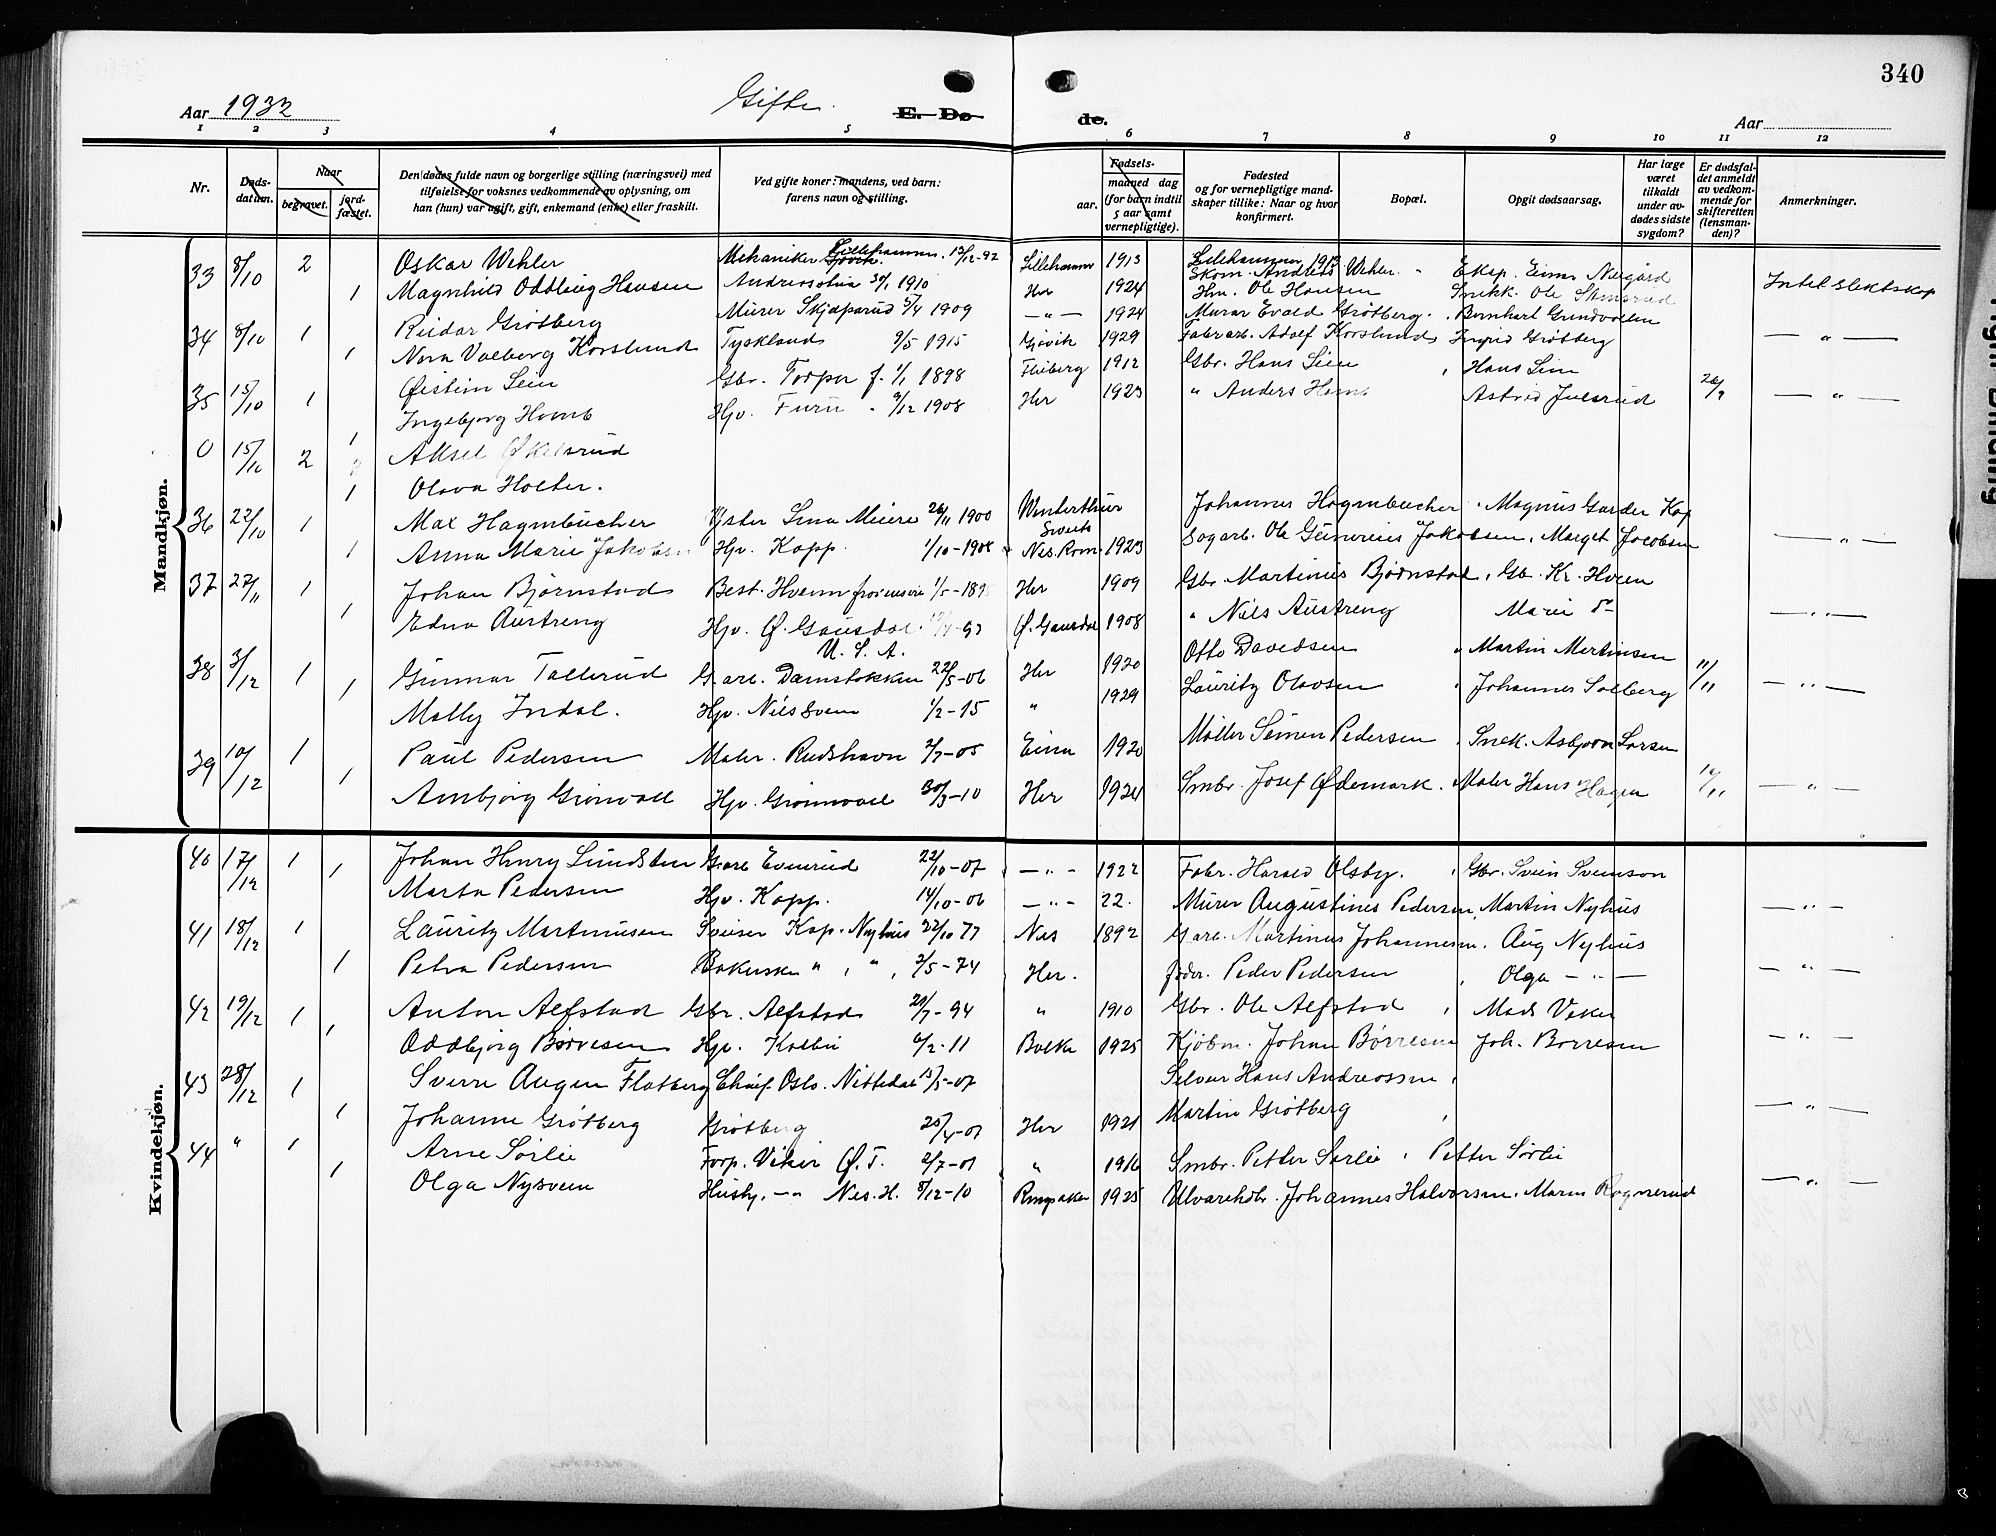 340
Aar 1932 Gifte. E. Dø de. Aar
1 2 3 4 5 6 7 8 9 10 11 12
Nr.
Døds-datum.
Naar
begravet.
jord-fæstet.
Den dødes fulde navn og borgerlige stilling (næringsvei) med
tilføielse for voksnes vedkommende av oplysning, om
han (hun) var ugift, gift, enkemand (enke) eller fraskilt.
Ved gifte koner: mandens, ved barn:
farens navn og stilling.
Fødsels-
aar. maaned dag
(for barn indtil
5 aar samt
vernepligtige).
Fødested
og for vernepligtige mand-
skaper tillike: Naar og hvor
konfirmert.
Bopæl.
Opgit dødsaarsag.
Har læge
været
tilkaldt
under av-
dødes sidste
sygdom?
Er dødsfal-
det anmeldt
av vedkom-
mende for
skifteretten
(lensman-
den)?
Anmerkninger.
Mandkjøn.
33 8/10 2 Oskar Wehler Mekaniker Lillehammer 13/12-92 Lillehammer 1913 Lillehammer 1913 Skom. Andreas Wehler Eksp. Einar Nægård
1 Magnhild Oddbiug Hansen 30/1 1910 Her 1924 Hm. Ole Hansen Snekk. Ole Stensrud Intet slektskap
34 8/10 1 Reidar Grøtberg Murer Skjaparud 5/4 1909 — " — 1924 Murer Evald Grøtberg Bernhart Grundvollen
1 Nora Valborg Korslund Tyskland 9/5 1915 Gjøvik 1929 Fabrarb. Adolf Korslund Ingrid Grøtberg — " —
35 15/10 1 Øistein Lein Gbr. Torper f. 1/1 1898 Fliberg 1912 Gbr. Hans Lien Hans Lien
1 Ingeborg Homb Hjv. Furu " 9/12 1908 Her 1923 " Anders Homb Astrid Julsrud 26/9 — " —
0 15/10 2 Aksel Økelsrud
1 Olava Holter.
36 22/10 1 Max Hagmbucher Yster Lena Meieri 26/11 1900 Winterthur Sveits Johannes Hagmbucher Magnus Garder Kap
1 Anna Marie Jakobsen Hjv. Kapp. 1/10-1908 Nes. Rom. 1923 Sagarb. Ole Gunerius Jakobsen, Marget Jacobsen — " —
37 27/11 1 Johan Bjørnstad Best. Hveem 1/5-189 Her 1909 Gbr. Martinus Bjørnstad, Gb. Kr. Hveen
1 Edna Austreng Hjv. Ø. Gausdal U. S. A. Ø. Gausdal 1908 " Nils Austreng Marie do — " —
38 3/12 1 Gunnar Tallerud G.arb. Damstokken 22/5-06 Her 1920 Otto Davidsen " Martin Martinsen
1 Molly Indal. Hjv. Nilssveen 1/2-15 " 1929 Lauritz Olavsen " Johannes Solberg 11/11 — " —
39 10/12 1 Paul Pedersen Maler. Rudshavn 2/7-05 Eina 1920 Møller Simen Pedersen Snek. Asbjørn Larsen
1 Ambjørg Grønvoll Hjv. Grønnvoll 30/3-10 Her 1924 Smbr. Josef Ødemark. Maler Hans Hagen — " —
Kvindekjøn.
40 17/12 1 1 Johan Henry Lundsten G.arb Evenrud 22/10-07 — " — 1922 Fabr. Harald Olsby. Gbr. Svein Svenson
Marta Pedersen Hjv. Kapp. 14/10-06 — " — 22. Murer Augustinus Pedersen, Martin Nyhus — " —
41 18/12 1 Lauritz Martinusen Sveiser Kap. Nyhus 22/10 77 Nes 1892 G.arb. Martinus Johannesen. Aug Nyhus
1 Petra Pedersen " " 2/5-74 Her. Peder Pedersen Olga — " — — " —
42 19/12 1 1 Anton Alfstad Gbr. Alfstad 20/7-94 " 1910 Gbr. Ole Alfstad Mads Viken
Oddbjørg Børresen Hjv. Kolbu 6/2-11 Balke 1925 Kjøbm. Johan Børresen Joh. Børresen — " —
43 28/12 1 Sverre Augen Flatberg Chauf. Oslo. Nittedal 13/5-07 Hans Andreassen
1 Johanne Grøtberg Grøtberg 20/4-01 Her 1921 Martin Grøtberg — " —
44 " 1 Arne Sørlie Forp. Viker Ø. T. 2/7-01 " 1916 Smbr. Petter Sørlie, Petter Sørlie
1 Olga Nysveen Husbj. — " Nes. H. 8/12-10 Ringsaker 1925 Johannes Halvorsen, Marus Rognerud — " —